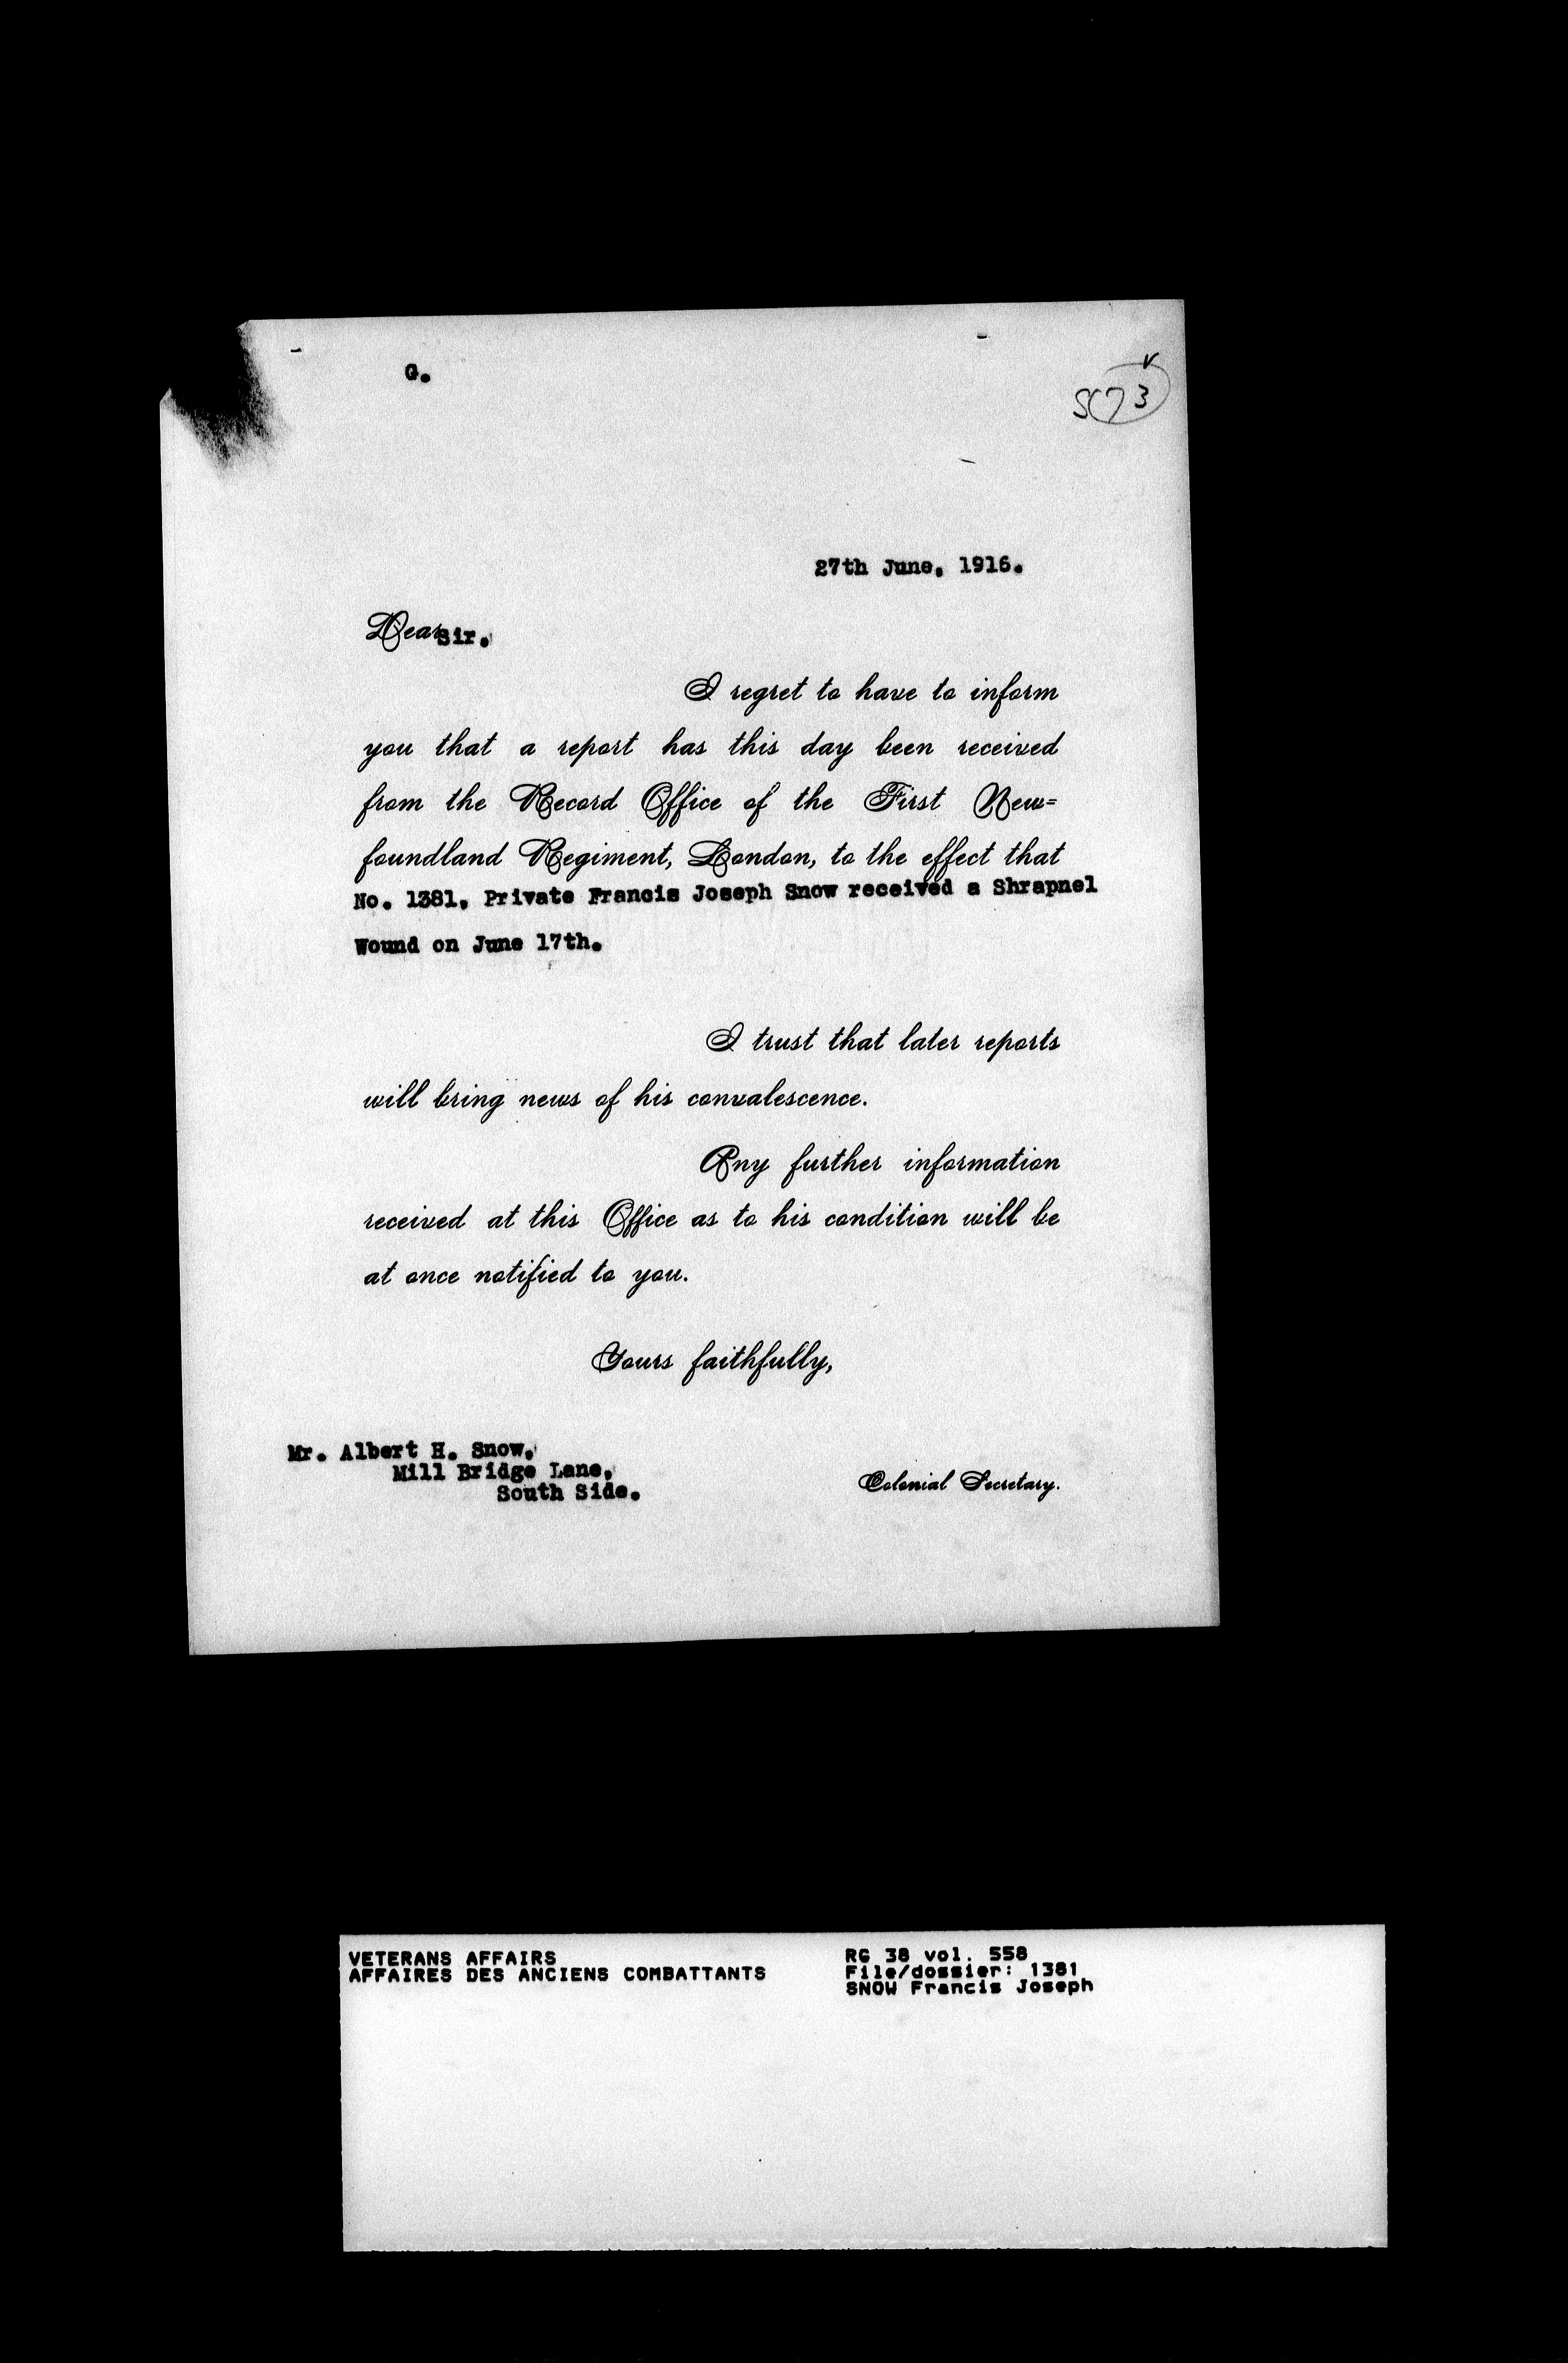 G.
27th June, 1916.
Dear Sir,
I regret to have to inform
you that a report has this day been received
from the Record Office of the First New=
foundland Regiment, London, to the effect that
No. 1381, Private Francis Joseph Snow received a Shrapnel
Wound on June 17th.
I trust that later reports
will bring news of his convalescence.
Any further information
received at this Office as to his condition will be
at once notified to you.
Yours faithfully,
Mr. Albert H. Snow,
Mill Bridge Lane,
South Side.
Colonial Secretary.
VETERANS AFFAIRS
AFFAIRES DES ANCIENS COMBATTANTS
RG 38 vol. 558
File/dossier: 1381
SNOW Francis Joseph